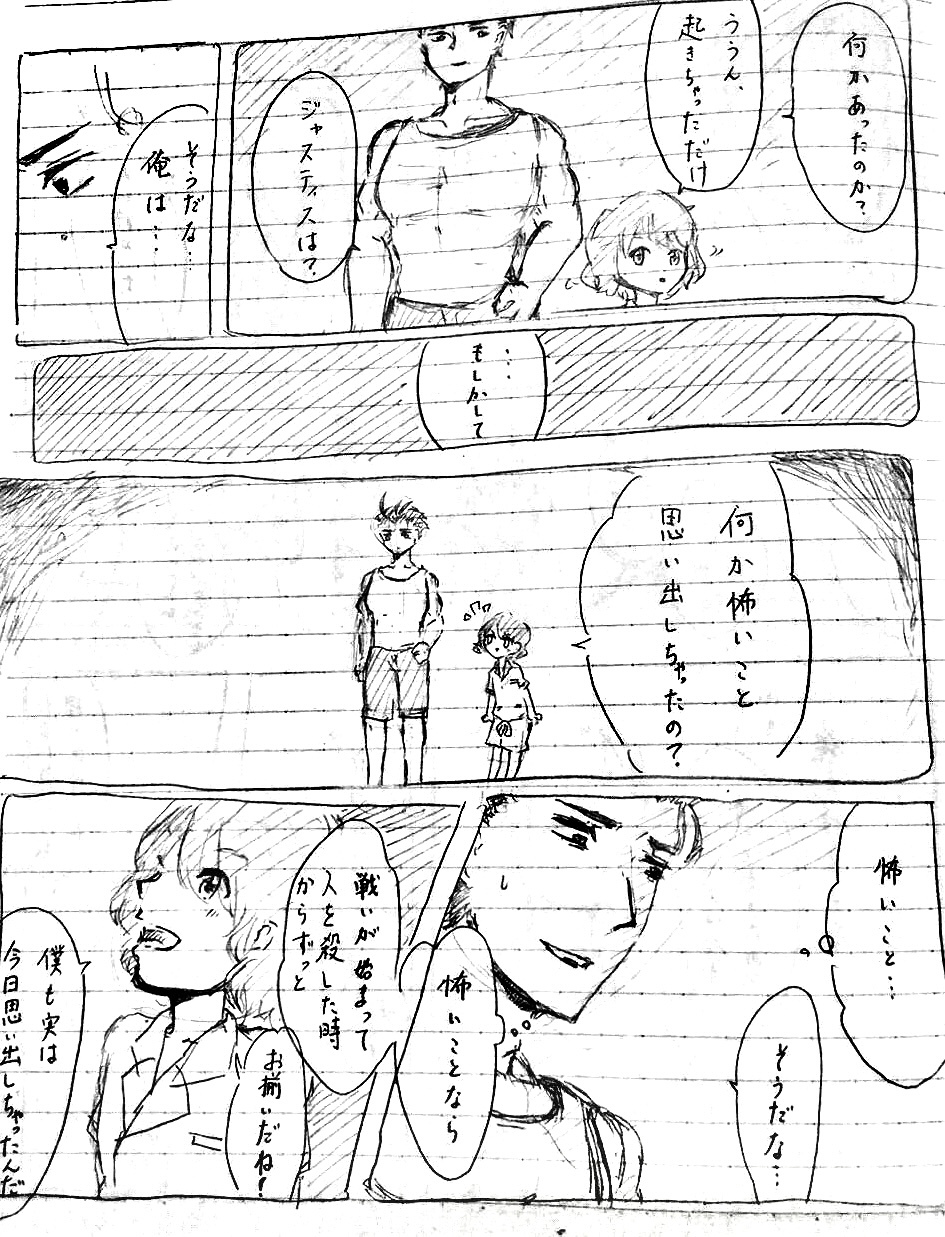 何かあったのか?
ううん、
起きちゃっただけ
ジャスティスは?
そうだな…
俺は…
…もしかして
何か怖いこと
思い出しちゃったの?
怖いこと…
そうだな…
怖いことなら
戦いが始まって
人を殺した時
からずっと
お揃いだね!
僕も実は
今日思い出しちゃったんだ